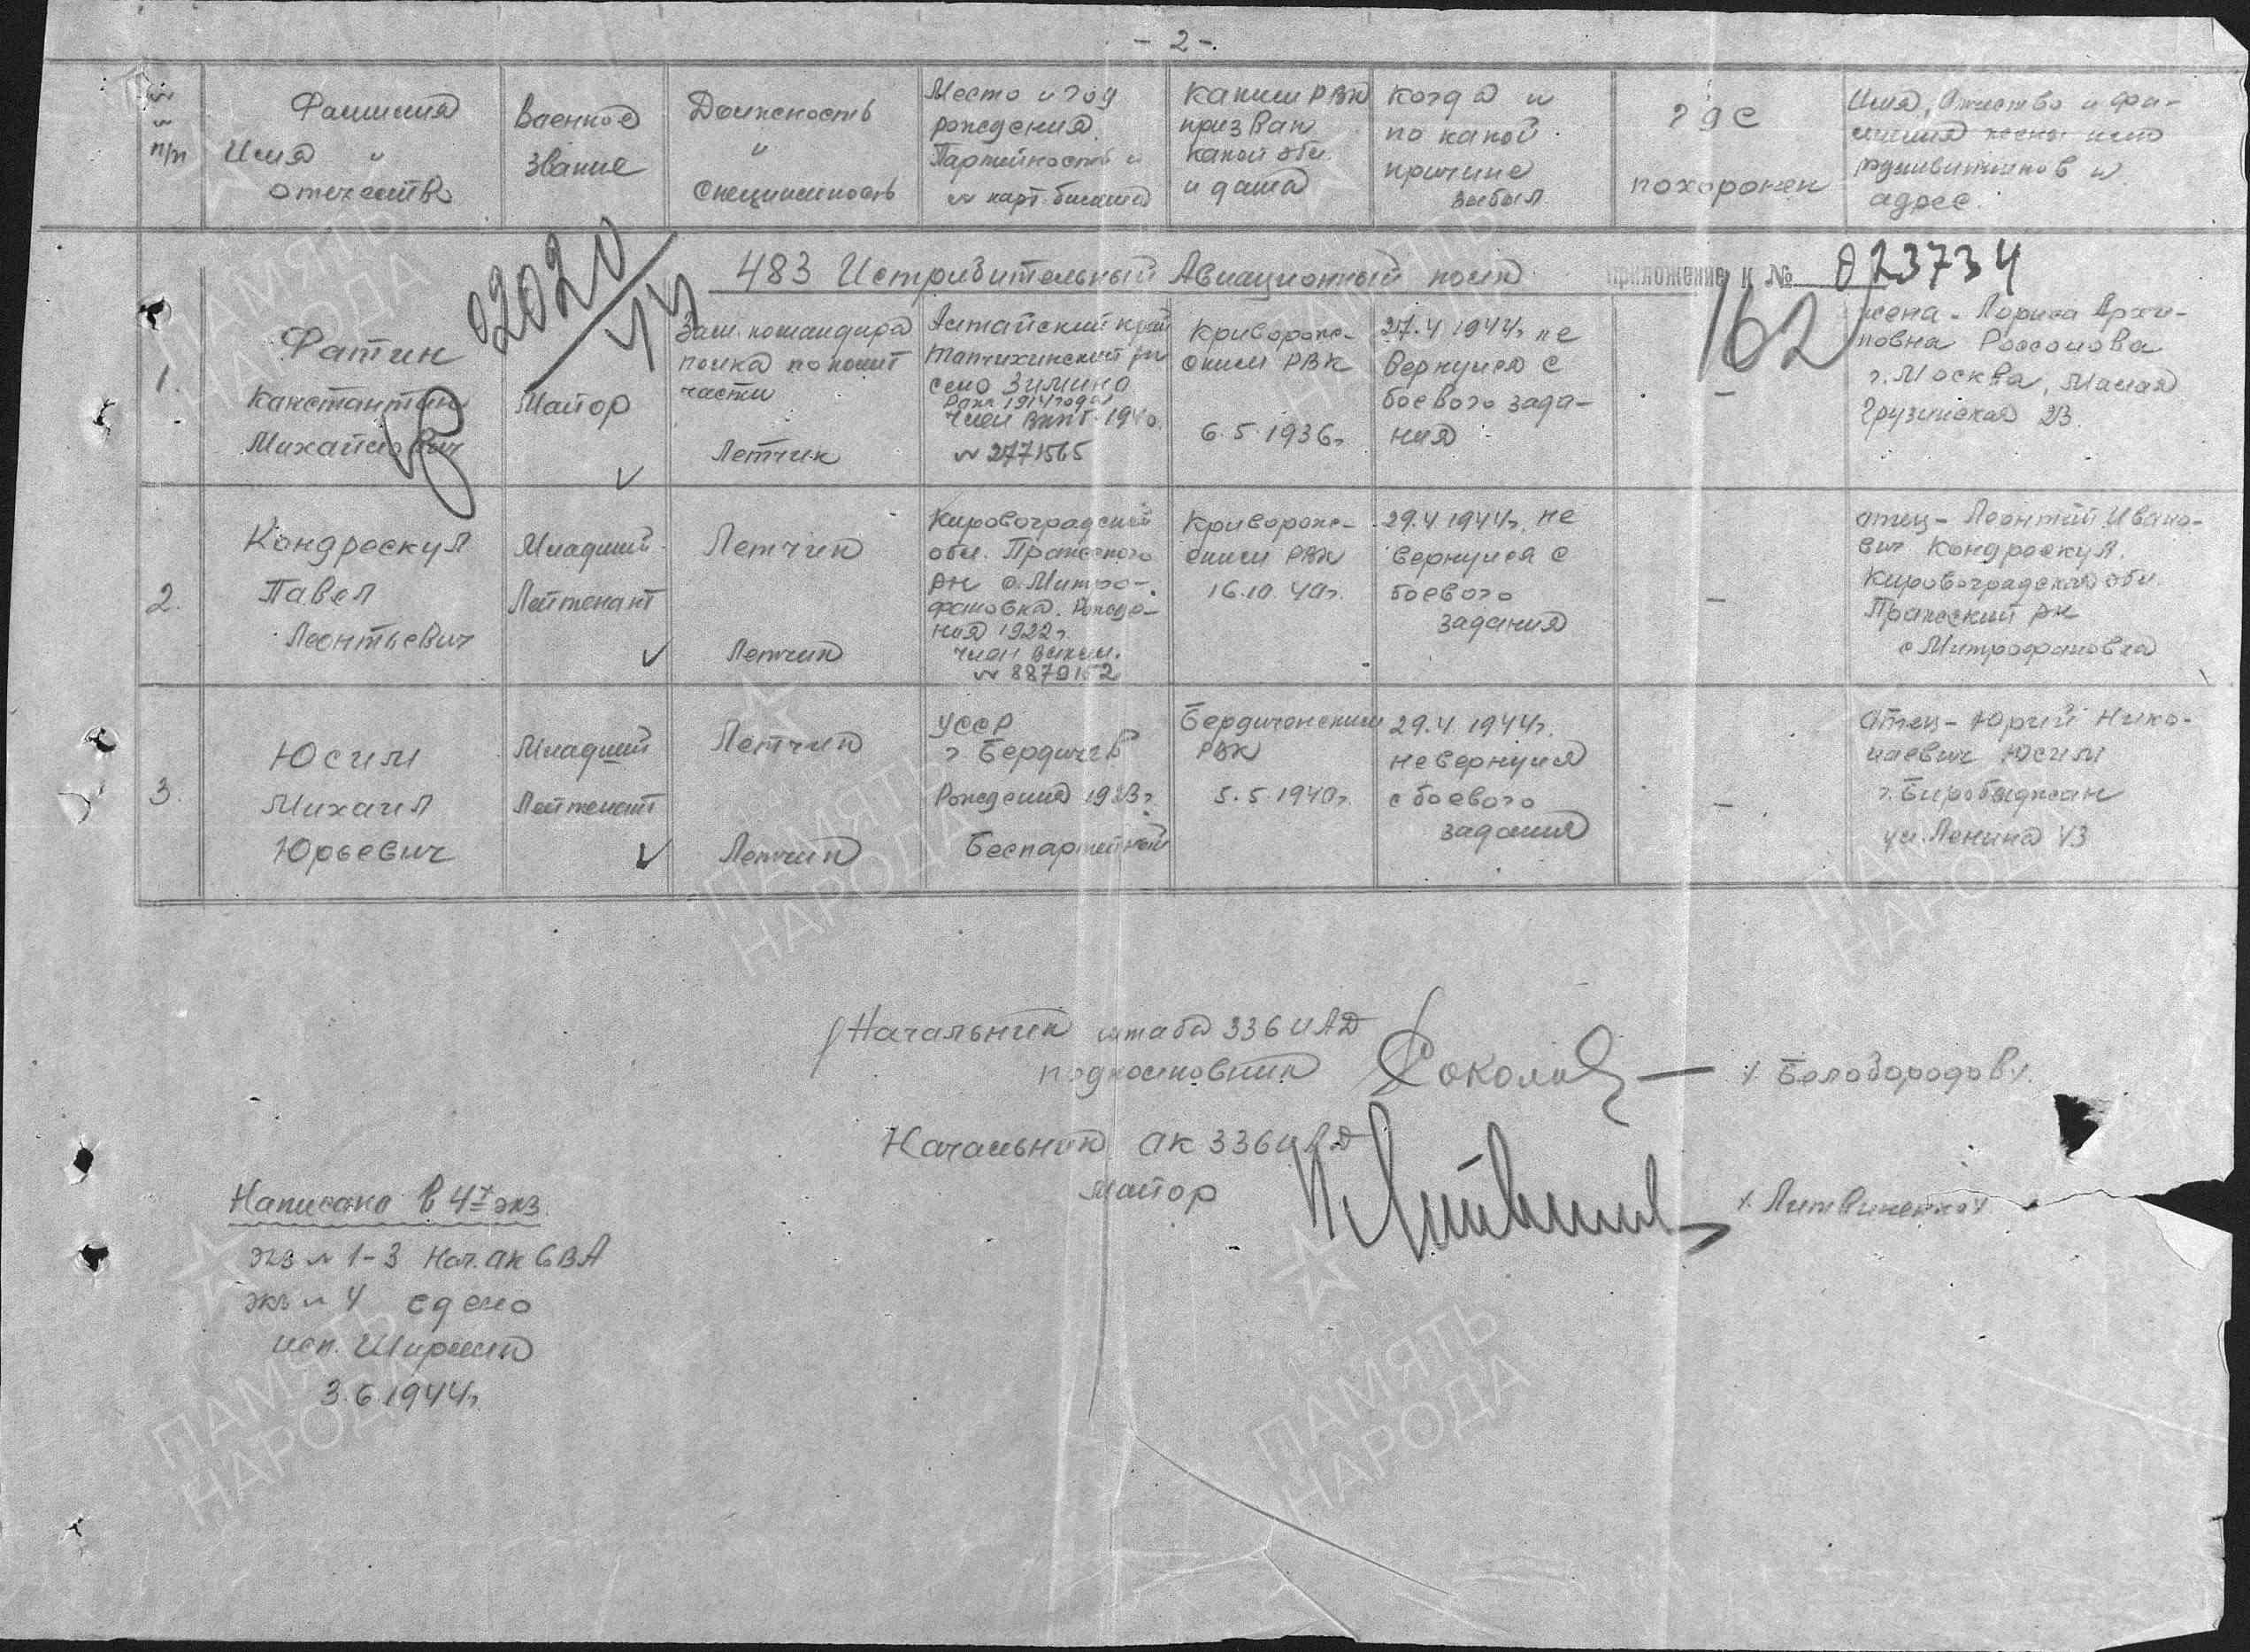 - 2 -.
№ № п/п
Фамилия Имя и отчество
Военное звание
Должность и специальность
Место и год рождения. Партийность и № карт. билета
Каким РВК призван какой обл. и дата
Когда и по какой причине выбыл
Где похоронен
Имя, Отчество и фамилия жены или родственников и адрес.
02020/44
483 Истрибительный Авиационный полк
приложение к № 023734
162
1.
Фатин
Канстантин
Михайлович
Майор
Зам. командира
полка по полит
части
Летчик
Алтайский край
Топчихинский рн
село Зимино
Рож. 1914 года
Член ВКПб. 1940.
№ 2771565
Криворож-
ским РВК
6.5.1936г
27.4 1944г не
вернулся с
боевого зада-
ния
-
жена - Лориса Архи-
повна Россолова
г. Москва, Малая
Грузинская 23.
2.
Кондрескул
Павел
Леонтьевич
Младший
Лейтенант
Летчик
Летчик
Кировоградской
обл.
рн с. Митро-
фановка. Рожде-
ния 1922г
член влксм.
№ 8879152
Криворож-
ским РВК
16.10.40г.
29.4 1944г. не
вернулся с
боевого
задания
-
отец - Леонтий Ивано-
вич Кондрескул.
Кировоградская обл.
рн
с Митрофановка
3.
Юсим
Михаил
Юрьевич
Младший
Лейтенант
Летчик
Летчик
УССР
г Бердичев
Рождения 1923г.
Беспартейный
Бердиченским
РВК
5.5.1940г.
29.4 1944г.
не вернулся
с боевого
задания
-
Отец - Юрий Нико-
лаевич Юсим
г. Биробиджан
ул. Ленина 43
Начальник штаба 336 ИАД
подполковник Соколов — /Белобородов/.
Начальник ак 336 ИАД
майор /Литвиненко/
Написано в 4х экз.
экз № 1-3 Нач. ак 6ВА
экз № 4 в дело
исп. Ширшин
3.6.1944г.
ПАМЯТЬ
НАРОДА
ПАМЯТЬ
НАРОДА
ПАМЯТЬ
НАРОДА
ПАМЯТЬ
НАРОДА
ПАМЯТЬ
НАРОДА
ПАМЯТЬ
НАРОДА